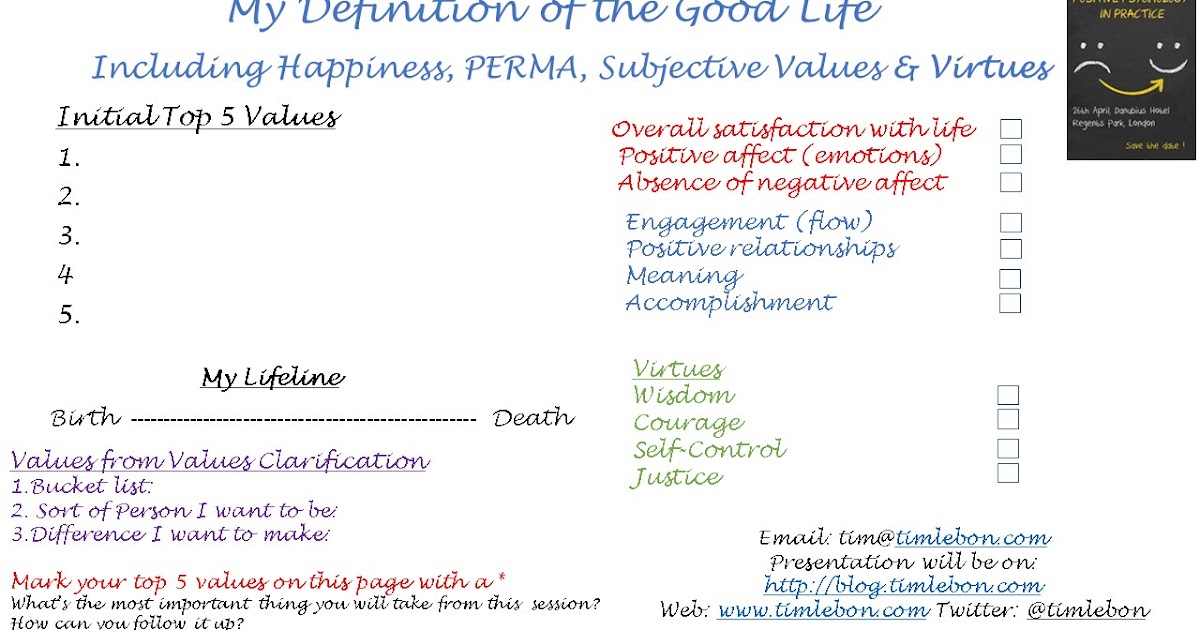 My Definition of the Good Life
Including Happiness, PERMA, Subjective Values & Virtues
POSITIVE PSYCHOLOGY
IN PRACTICE
26th April, Danubius Hotel
Regents Park, London
Save the date !
Initial Top 5 Values
1.
2.
3.
4
5.
My Lifeline
Birth ---------------------------------------------------- Death
Values from Values Clarification
1.Bucket list:
2. Sort of Person I want to be:
3.Difference I want to make:
Mark your top 5 values on this page with a *
What's the most important thing you will take from this session?
How can you follow it up?
Overall satisfaction with life
Positive affect (emotions)
Absence of negative affect
Engagement (flow)
Positive relationships
Meaning
Accomplishment
Virtues
Wisdom
Courage
Self-Control
Justice
Email: tim@timlebon.com
Presentation will be on:
http://blog.timlebon.com
Web: www.timlebon.com Twitter: @timlebon